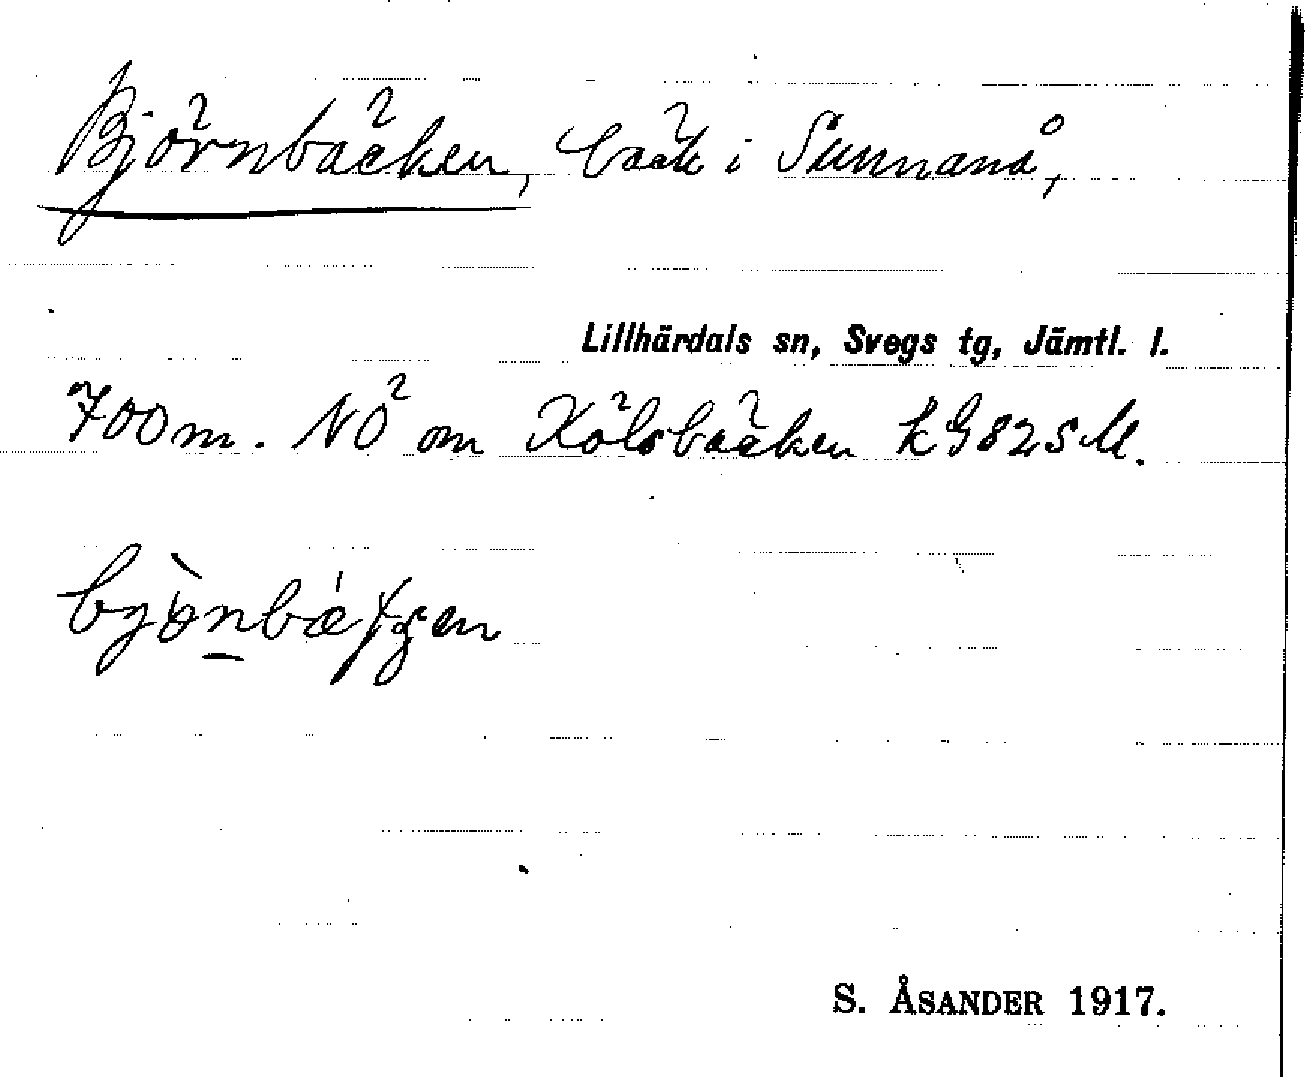 Björnbäcken, bäck i Sunnanå,
Lillhärdals sn, Svegs tg, Jämtl. l.
700 m. NÖ om Kölsbäcken kG82SM.
S. ÅSANDER 1917.